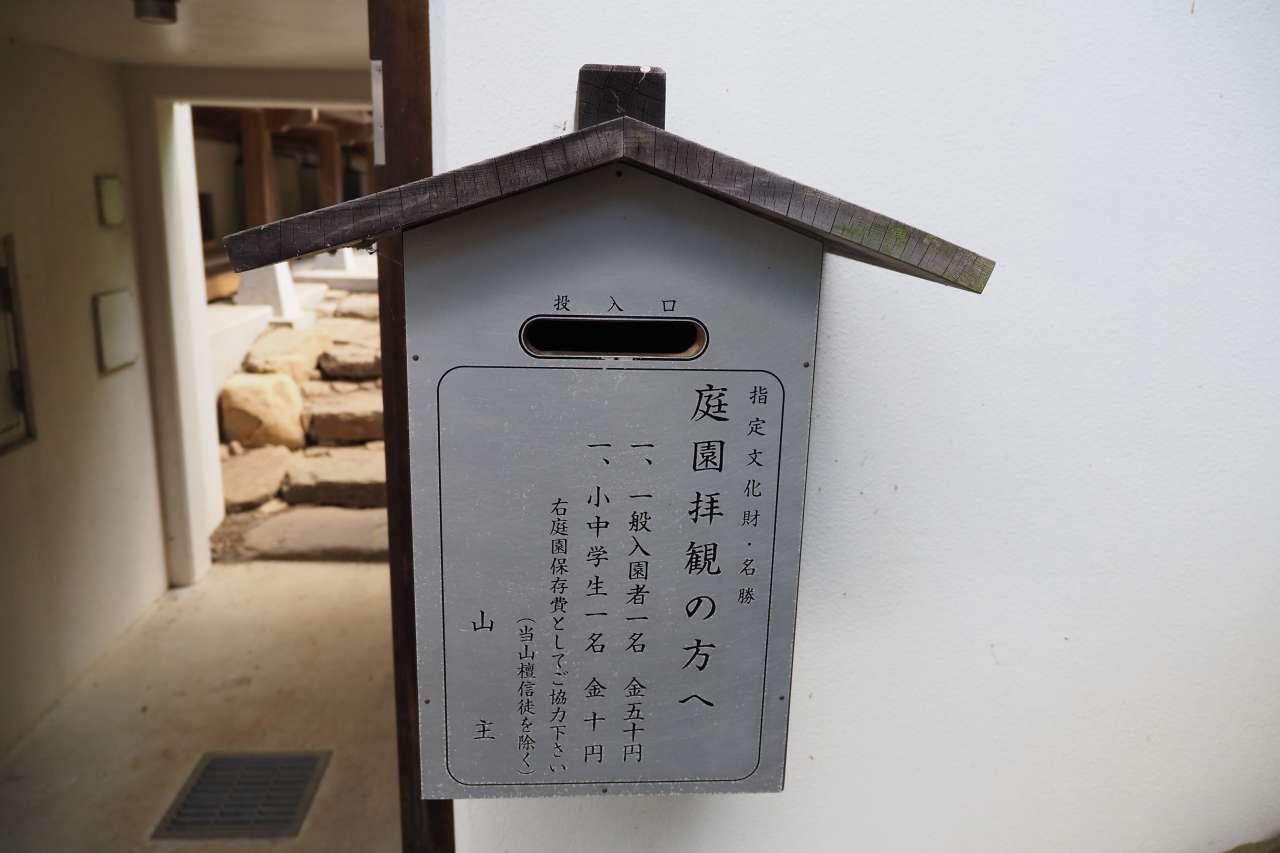 投入口
指定文化財・名勝
庭園拝観の方へ
一、一般入園者一名 金五十円
一、小中学生一名 金十円
右庭園保存費としてご協力下さい
(当山檀信徒を除く)
山主